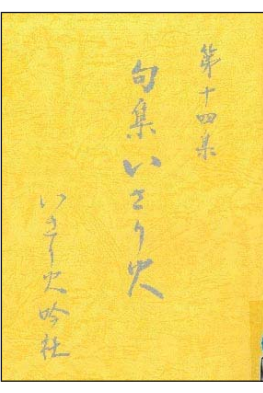 第十四集
句集いさり火
いさり火吟社